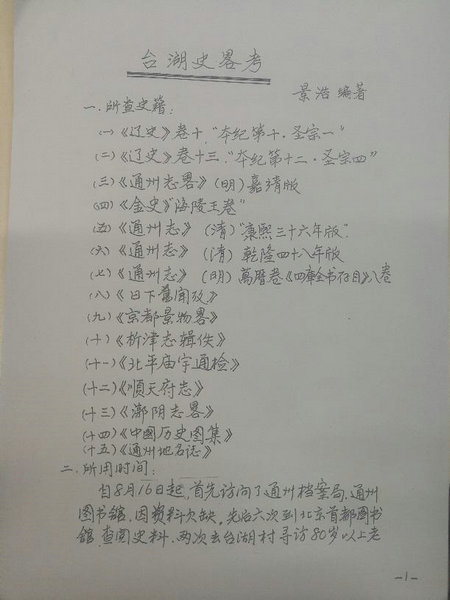 台湖史畧考
景浩 编著
一.所查史籍:
(一)《辽史》卷十."本纪第十·圣宗一"
(二)《辽史》卷十三."本纪第十二·圣宗四"
(三)《通州志畧》(明)嘉靖版
(四)《金史》"海陵王卷"
(五)《通州志》(清)"康熙三十六年版"
(六)《通州志》(清)乾隆四十八年版
(七)《通州志》(明)萬曆卷《四庫全书存目》八卷
(八)《日下舊闻攷》
(九)《京都景物畧》
(十)《析津志輯佚》
(十一)《北平庙宇通检》
(十二)《順天府志》
(十三)《漷阴志畧》
(十四)《中國历史图集》
(十五)《通州地名誌》
二.所用时间:
自8月16日起,首先访问了通州档案局.通州
图书馆.因资料欠缺.先后六次到北京首都图书
馆查阅史料.两次去台湖村寻访80岁以上老
-1-